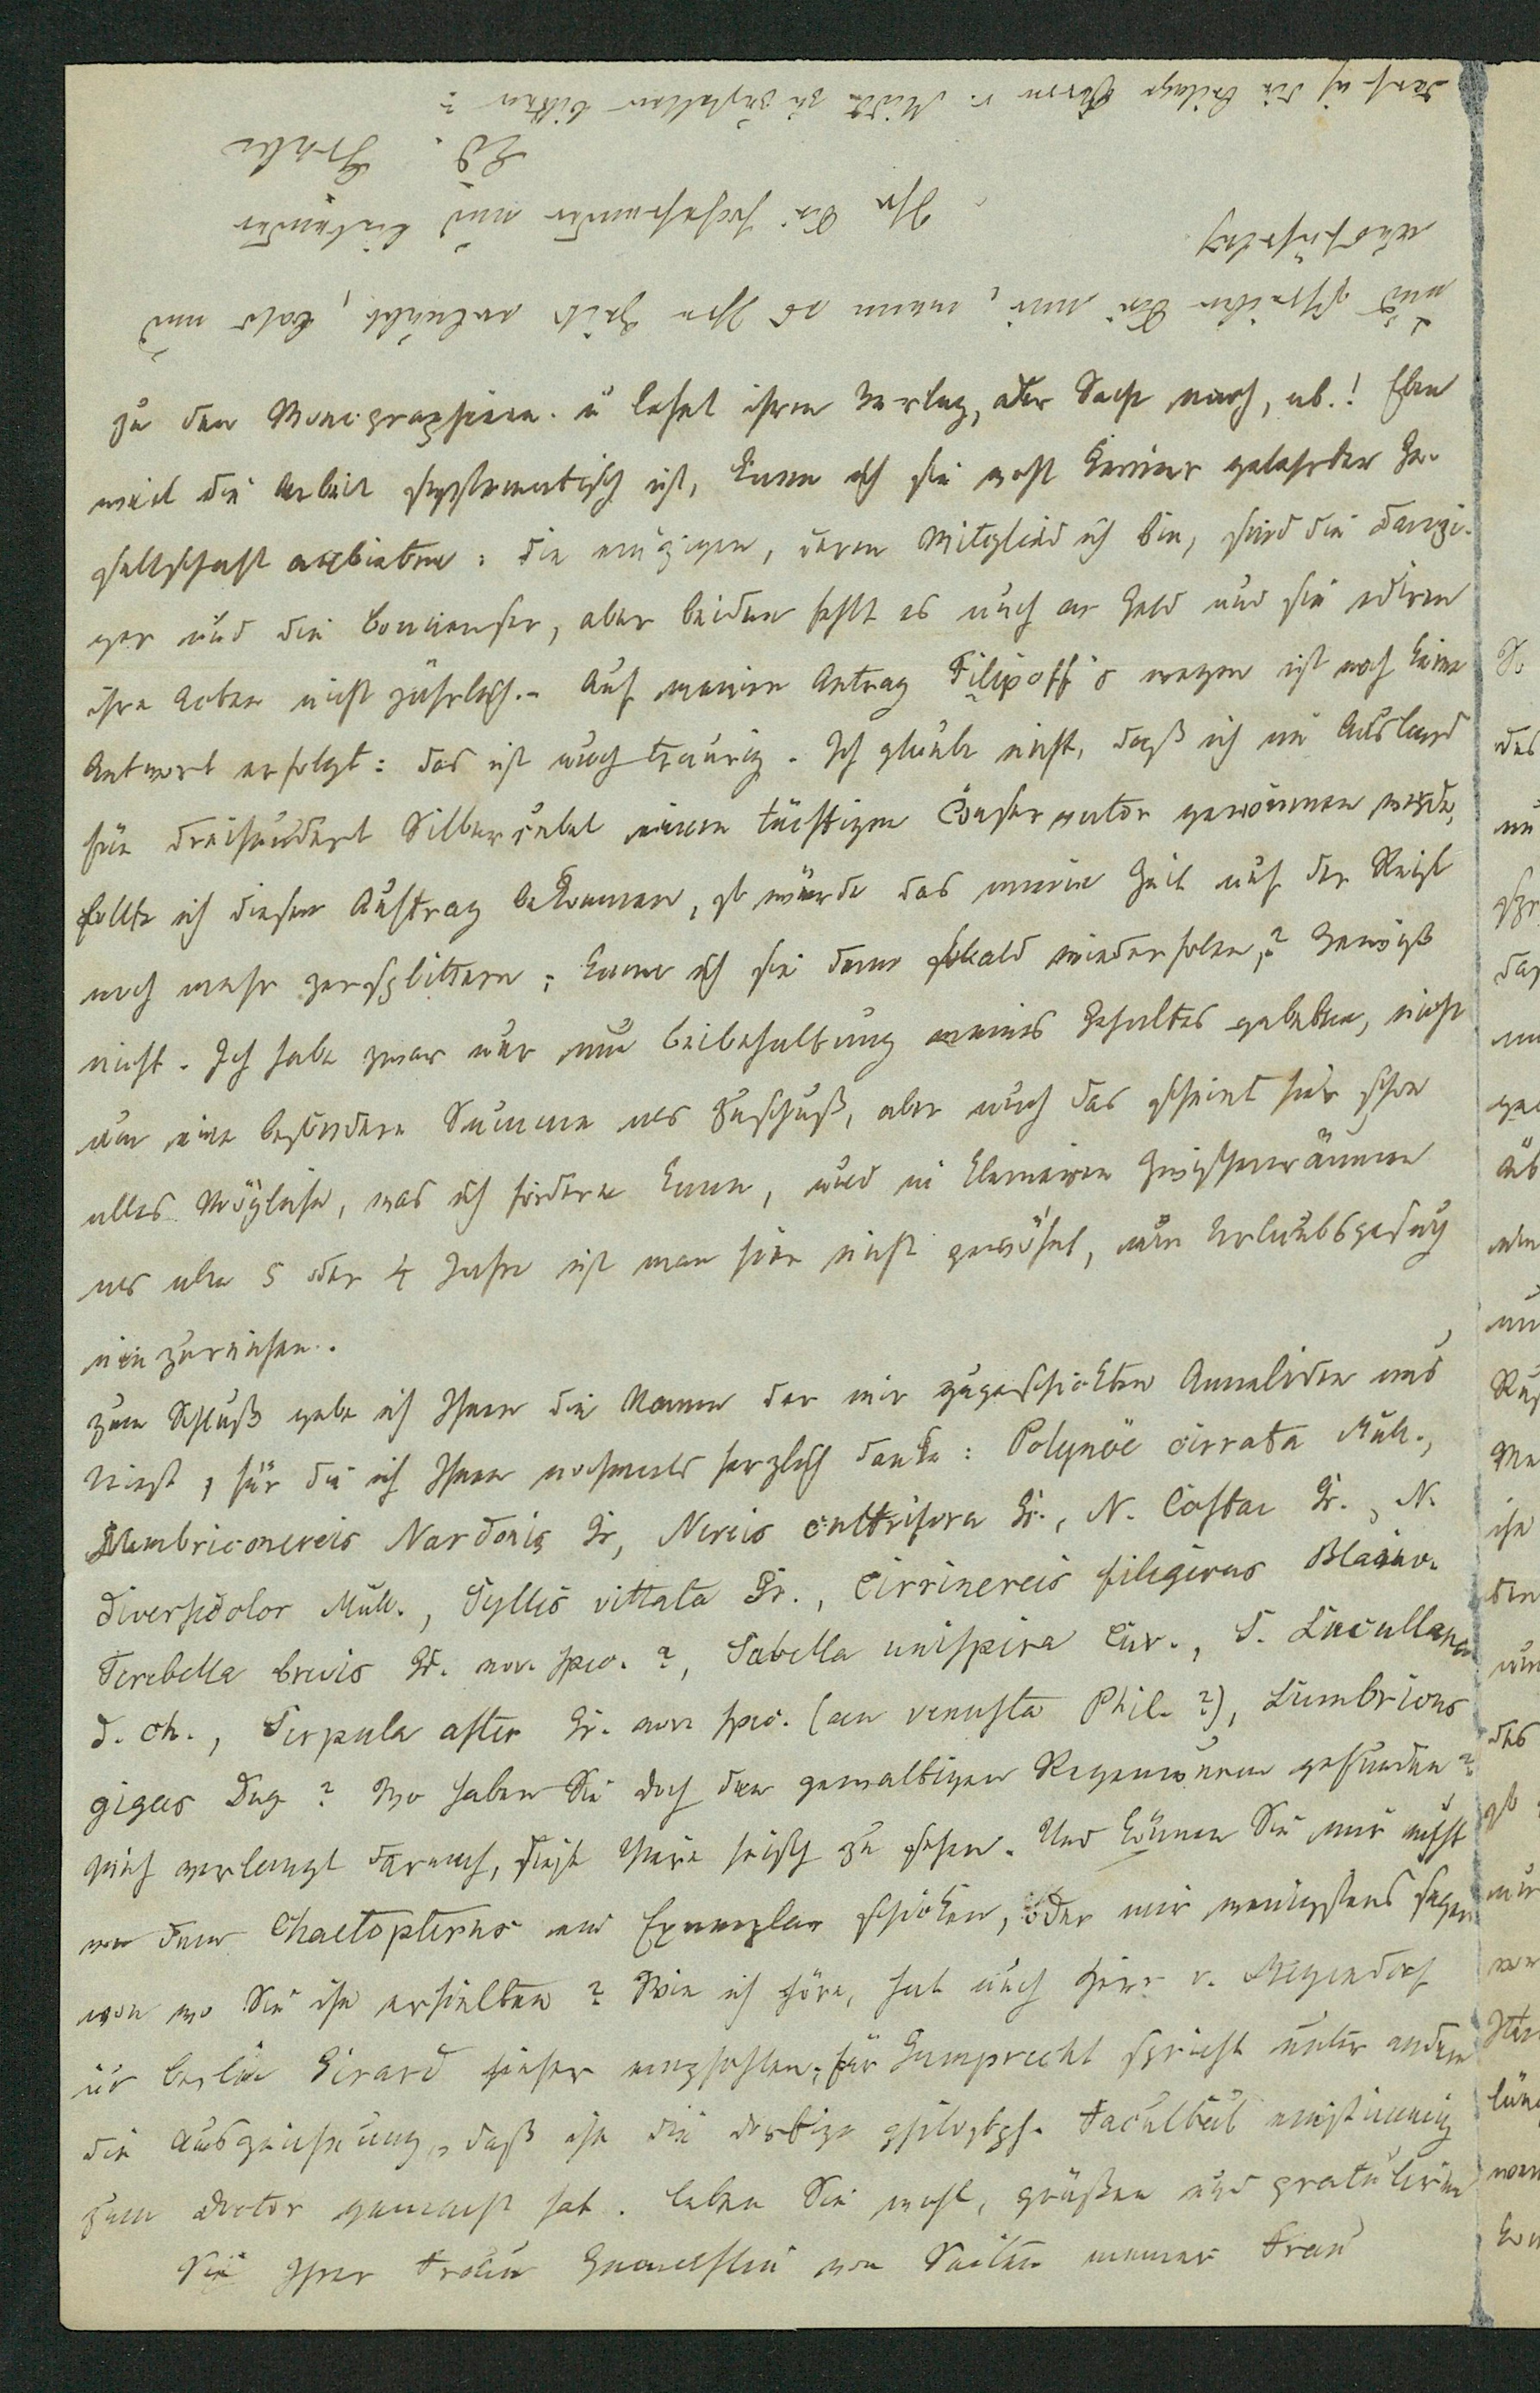 zu den Monographieen. u lehnt ihren Verlag, der Sache nach, ab.! Eben
weil die Arbeit systematisch ist, kann ich sie wohl keiner gelehrten Ge-
sellschaft anbieten: die einzigen, deren Mitglied ich bin, sind die Danzi-
ger und die, aber beiden fehlt es auch an Geld und sie ediren
ihre Acten nicht jährlich.- Auf meinen Antrag Filipoff's wegen ist noch keine
Antwort erfolgt: das ist auch traurig. Ich glaube nicht, daß ich im Ausland
für dreihundert Silberrubel einen tüchtigen Conservator gewinnen werde,
sollte ich diesen Auftrag bekommen, so würde das meine Zeit auf der Reise
noch mehr zersplittern; kann ich sie denn sobald wiederholen? Gewiß
nicht. Ich habe zwar nur um Beibehaltung meines Gehaltes gebeten, nicht
um eine besondere Summe als Zuschuß, aber auch das scheint hier schon
alles Mögliche, was ich fordern kann, und in kleineren Zwischenräumen
als alle 5 oder 4 Jahre ist man hier nicht gewöhnt, ein Urlaubsgesuch
einzureichen.
Zum Schluß gebe ich Ihnen die Namen der mir zugeschickten Anneliden aus
, für die ich Ihnen nochmals herzlich danke: Polynöe cirrata Müll.,
Lumbriconereis Nardonis Gr, Nereis cultrifera Gr., N. Costae Gr., N.
diversicolor Müll., Syllis vittata Gr., Cirrinereis filigerus Blainv.
Terebella brevis Gr. nov. spec. ?, Sabella unispira Cuv., S. Lucullana
d. Ch., Serpula aster Gr. nov spec. (an venusta Phil. ?), Lumbricus
gigas Dug ? Wo haben Sie doch den gewaltigen Regenwurm gefunden?
mich verlangt darnach, diese Thiere frisch zu sehen. Und können Sie mir nicht
von dem Chaetopterus ein Exemplar schicken, oder mir wenigstens sagen
von wo Sie ihn erhielten? Wie ich höre, hat auch Herr v. Meyendorf
in Berlin Girard hieher empfohlen; für Gumprecht spricht unter andern
die Auszeichnung, daß ihn die dortige philosoph. Facultät einstimmig
zum Doctor gemacht hat. Leben Sie wohl, grüßen und gratuliren
Sie Ihrer Frau Gemahlin von Seiten meiner Frau
und schreiben Sie mir, wenn es Ihre Zeit erlaubt, bald und
ausführlich
Ihr Sie hochachtender und liebender
Ed. Grube
Darf ich die Beilage Herrn v. Midd. zu zustellen bitten?